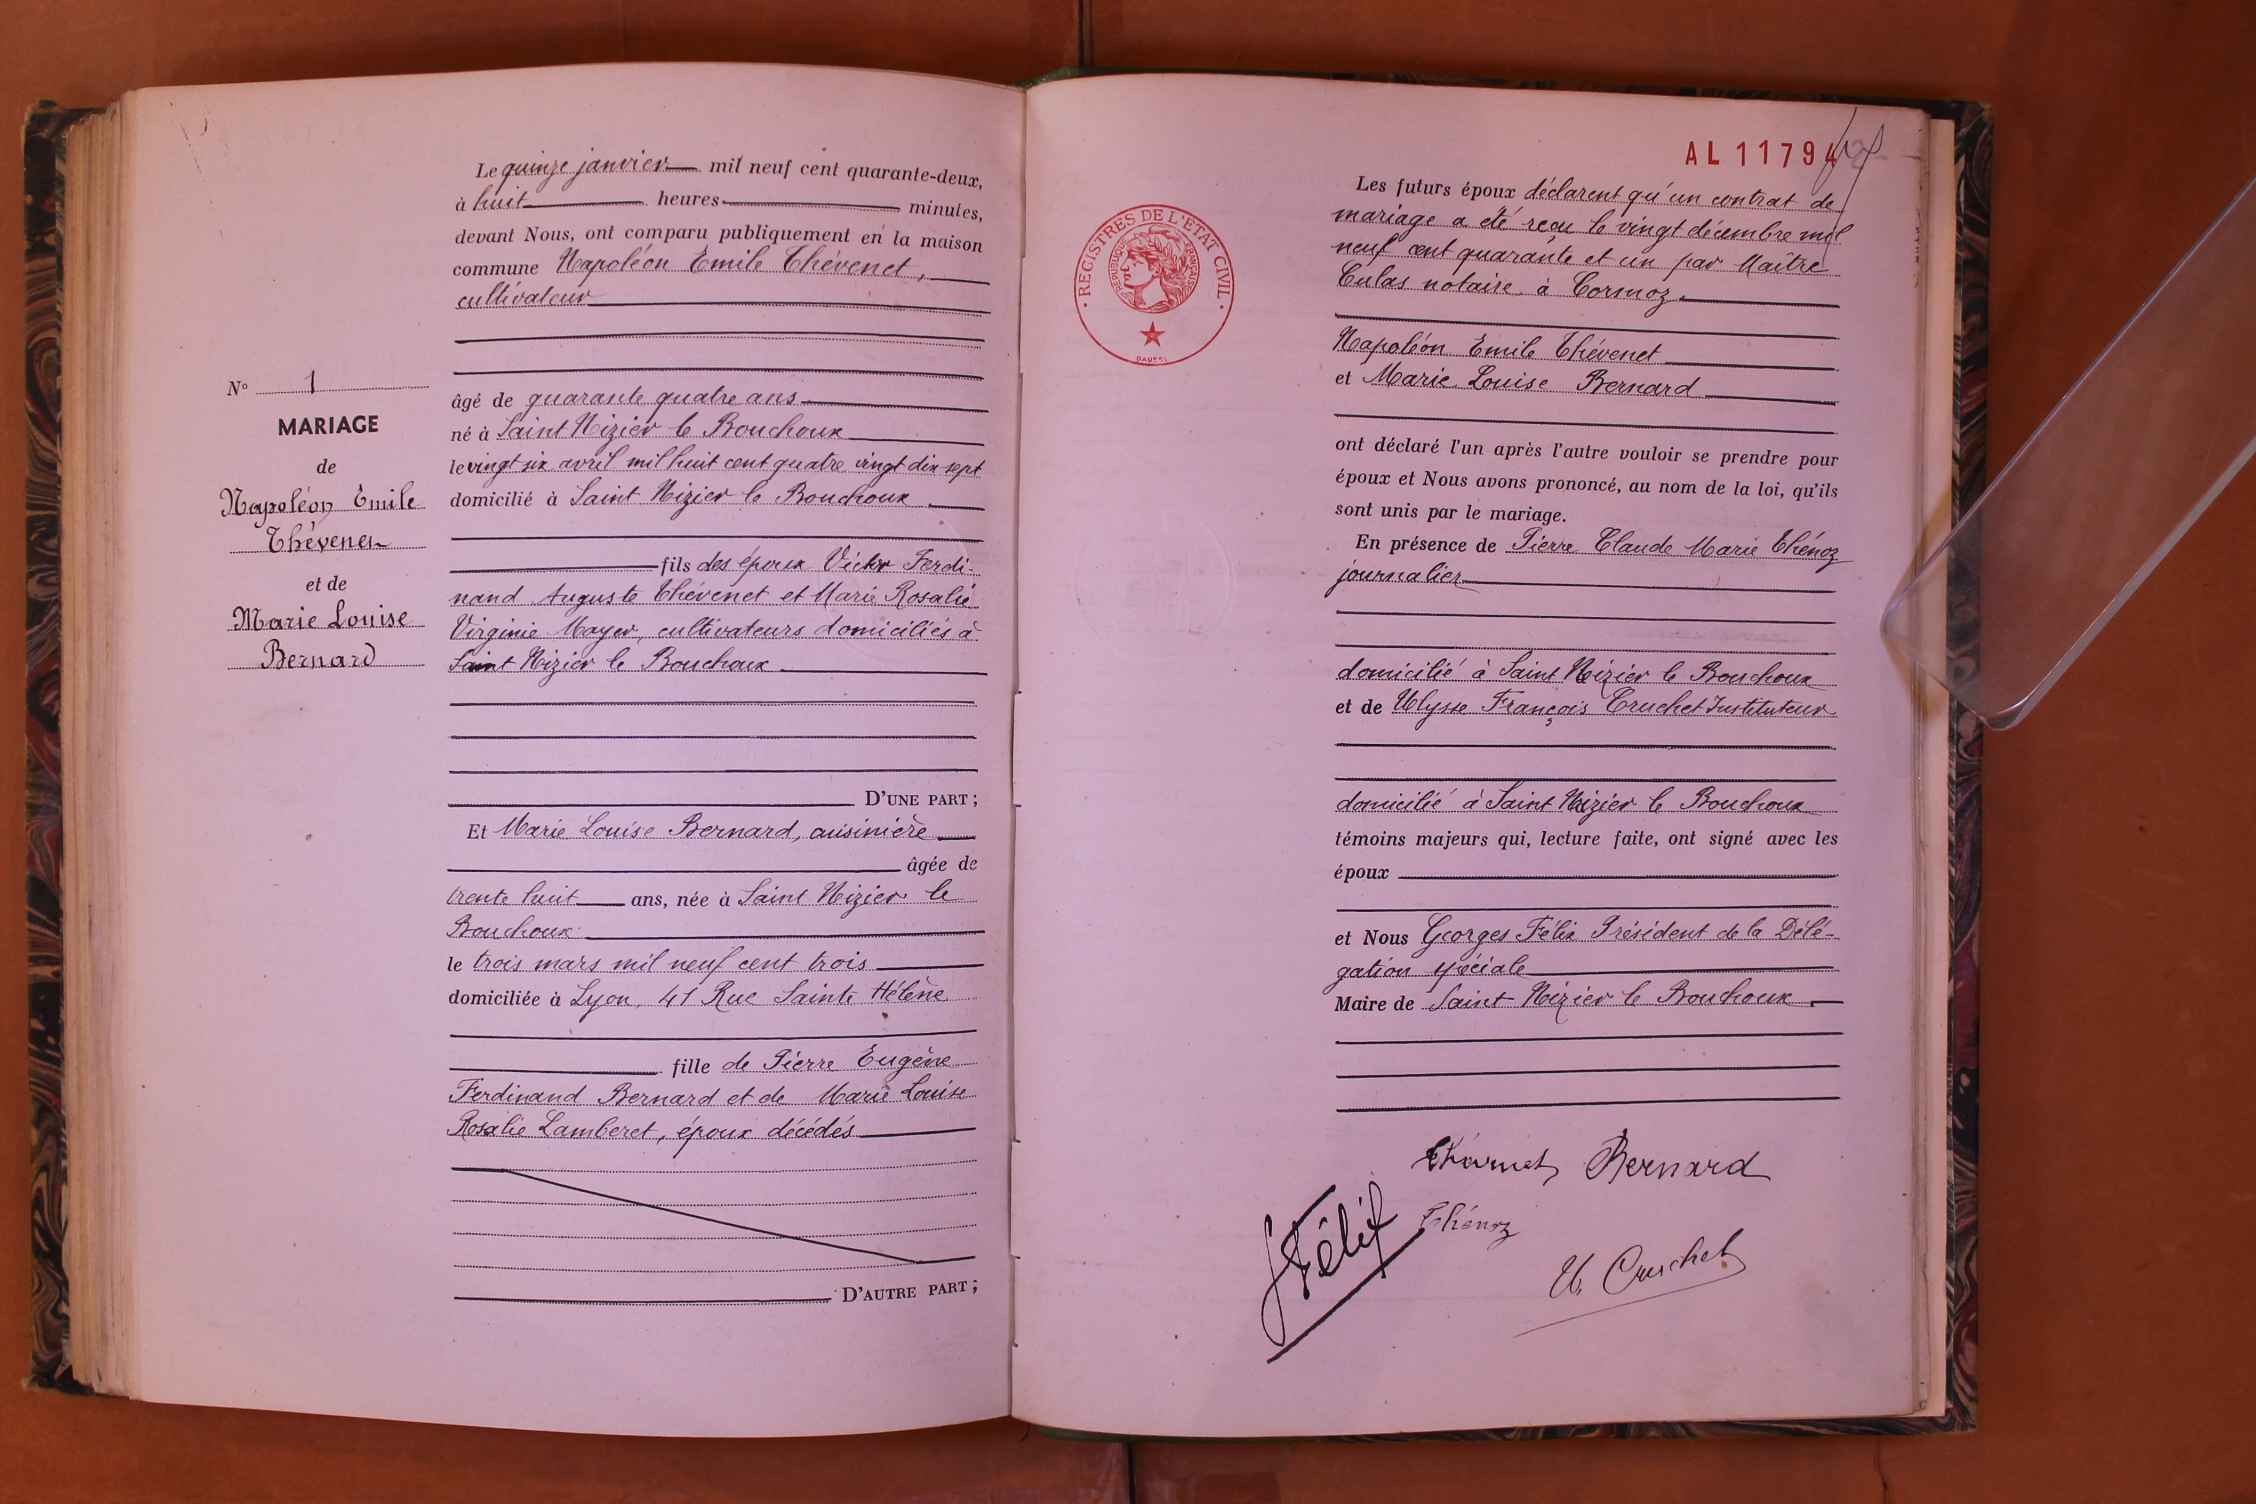 Le quinze janvier mil neuf cent quarante-deux,
à huit heures minutes,
devant Nous, ont comparu publiquement en la maison
commune Napoléon Emile Thévenet,
cultivateur
N° 1
MARIAGE
de
Napoléon Emile
Thévenet
et de
Marie Louise
Bernard
âgé de quarante quatre ans
né à Saint Nizier le Bouchoux
le vingt six avril mil huit cent quatre vingt dix sept
domicilié à Saint Nizier le Bouchoux
fils des époux Victor Ferdi-
nand Auguste Thévenet et Marie Rosalie
Virginie Mayer, cultivateurs domiciliés à
Saint Nizier le Bouchoux
D'UNE PART ;
Et Marie Louise Bernard, cuisinière
âgée de
trente huit ans, née à Saint Nizier le
Bouchoux
le trois mars mil neuf cent trois
domiciliée à Lyon, 41 Rue Sainte Hélène
fille de Pierre Eugène
Ferdinand Bernard et de Marie Louise
Rosalie Lamberet, époux décédés
D'AUTRE PART ;
AL 11794
REGISTRES DE L'ÉTAT CIVIL
RÉPUBLIQUE FRANÇAISE
Les futurs époux déclarent qu'un contrat de
mariage a été reçu le vingt décembre mil
neuf cent quarante et un par Maître
Culas notaire à Cormoz.
Napoléon Emile Thévenet
et Marie Louise Bernard
ont déclaré l'un après l'autre vouloir se prendre pour
époux et Nous avons prononcé, au nom de la loi, qu'ils
sont unis par le mariage.
En présence de Pierre Claude Marie Thénoz
journalier
domicilié à Saint Nizier le Bouchoux
et de Ulysse François Cruchet Instituteur
domicilié à Saint Nizier le Bouchoux
témoins majeurs qui, lecture faite, ont signé avec les
époux
et Nous Georges Félix Président de la Délé-
gation spéciale
Maire de Saint Nizier le Bouchoux.
Thévenet Bernard
Félix Thénoz
U. Cruchet